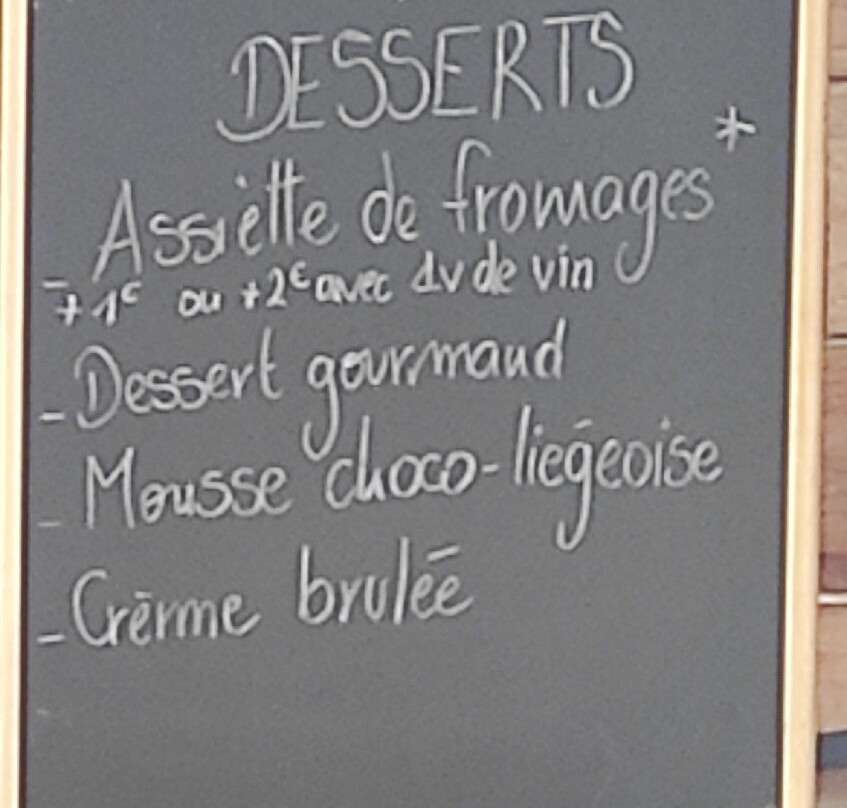 DESSERTS
- Assiette de fromages*
+1€ ou +2€ avec 1v de vin
- Dessert gourmand
- Mousse choco-liégeoise
- Crème brulée